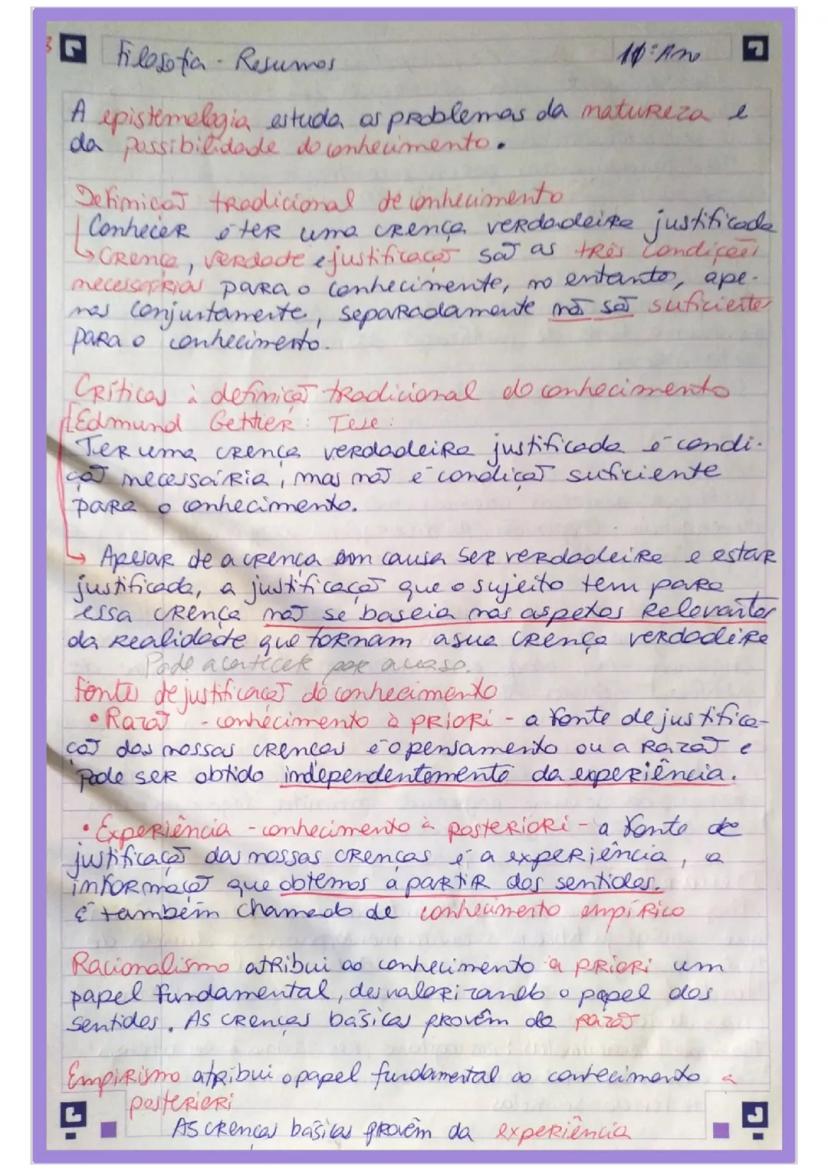 Filosofia - Resumos 11º Ano
A epistemologia estuda os problemas da natureza e
da possibilidade do conhecimento.
Definição tradicional de conhecimento
Conhecer é ter uma crença verdadeira justificada
↳ Crença, verdade e justificação são as três condições
necessárias para o conhecimento, no entanto, ape-
nas conjuntamente, separadamente não são suficientes
para o conhecimento.
Críticas à definição tradicional do conhecimento
[Edmund Gettier: Tese:
Ter uma crença verdadeira justificada é condi-
ção necessária, mas não é condição suficiente
para o conhecimento.
↳ Apesar de a crença em causa ser verdadeira e estar
justificada, a justificação que o sujeito tem para
essa crença não se baseia nos aspetos relevantes
da realidade que tornam a sua crença verdadeira
Pode acontecer por acaso.
Fontes de justificação do conhecimento
• Razão - conhecimento à priori - a fonte de justifica-
ção das nossas crenças é o pensamento ou a razão e
pode ser obtido independentemente da experiência.
• Experiência - conhecimento à posteriori - a fonte de
justificação das nossas crenças é a experiência, a
informação que obtemos a partir dos sentidos.
É também chamado de conhecimento empírico
Racionalismo atribui ao conhecimento a priori um
papel fundamental, desvalorizando o papel dos
sentidos. As crenças básicas provêm da razão
Empirismo atribui o papel fundamental ao conhecimento a
posteriori
As crenças básicas provêm da experiência